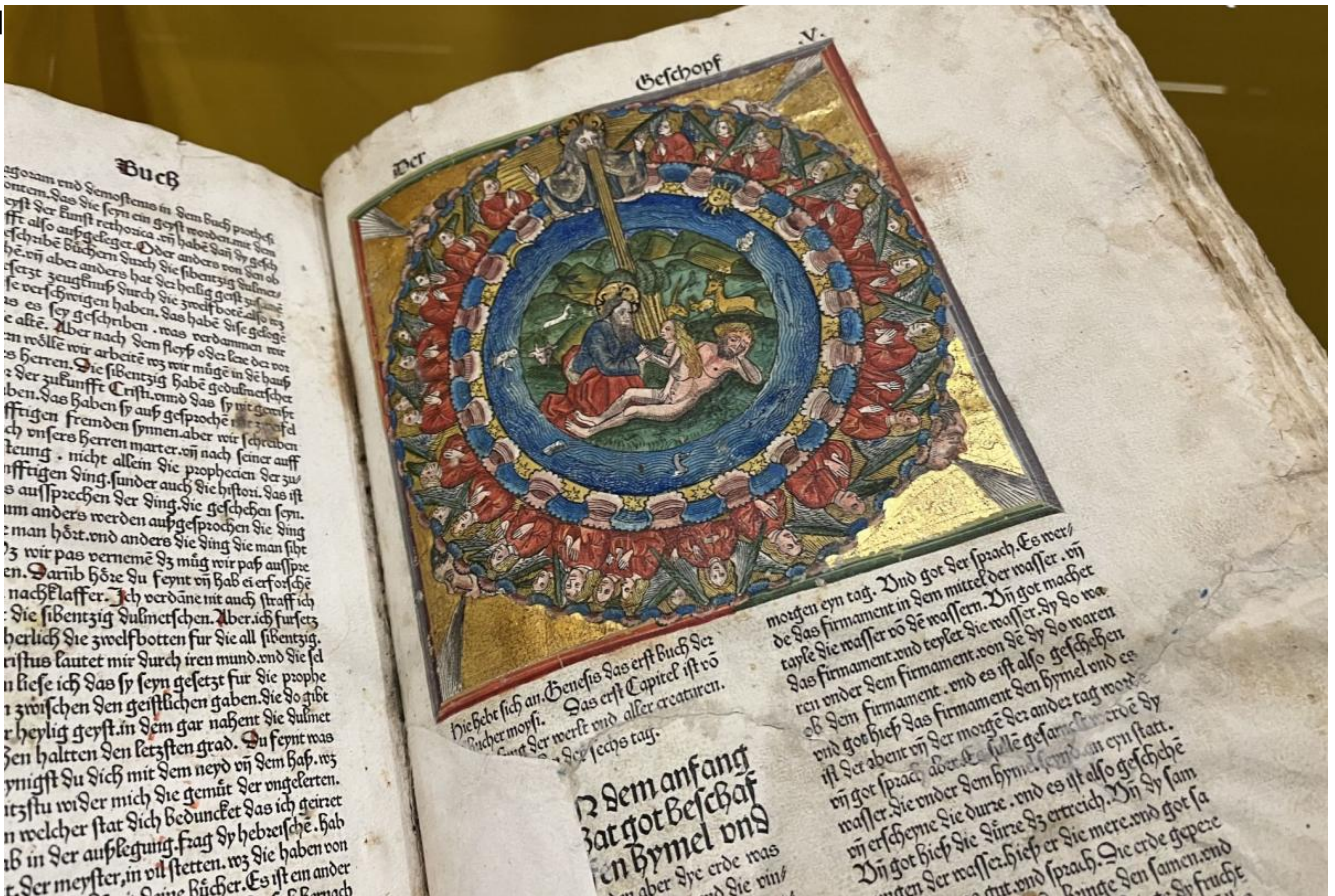 Buch
agoram vnd demostenis in dem buch prothesi
ontem. das die seyn ein geyst worden. mit dem
eyst der kunst rethorica. vñ habē dañ dy gesch
fft also außgeleget. Oder anders von den ob
eschribē büchern durch die sibentzig dulmets
hē. vñ aber anders hat der heilig geist
setzt zeugknuß durch die zwelfbotē. also wz
se verschwigen haben. das habē dise gelogē
as es sey geschriben. was verdammen wir
e altē. Aber nach dem fleyß oder lere der vor
en wölle wir arbeitē wz wir mügē in dē hauß
s herren. Die sibentzig habē gedulmetschet
r der zukunfft Cristi. vnnd das sy nit gewißt
ben. das haben sy auß gesprochē mit
fftigen fremden synnen. aber wir schreiben
ch vnsers herren marter. vñ nach seiner auff
steung. nicht allein die prophecien der zu⸗
nfftigen ding. sunder auch die histori. das ist
s aussprechen der ding. die geschehen seyn.
um anders werden außgesprochen die ding
e man hört. vnd anders die ding die man siht
z wir pas vernemē dz müg wir paß ausspre
en. Darüb höre du feynt vñ hab ei erforschē
nachklaffer. Ich verdāne nit auch straff ich
die sibentzig dulmetschen. Aber. ich fursetz
herlich die zwelfbotten fur die all sibentzig.
ristus lautet mir durch iren mund. vnd die sel
n liese ich das sy seyn gesetzt fur die prophe
n zwischen den geistlichen gaben. die do gibt
r heylig geyst. in dem gar nahent die dulmet
hen haltten den letzsten grad. Du feynt was
ynigst du dich mit dem neyd vñ dem haß. wz
itzstu wider mich die gemüt der vngelerten.
n welcher stat dich beduncket das ich geirret
b in der außlegung. frag dy hebreischē. hab
t. der meyster, in vil stetten. wz die haben von
bücher. Es ist ein ander
Der Geschopf .V.
Hie hebt sich an. Genesis das erst buch der
bucher moysi. Das erst Capitel ist vō
der werlt vnd aller creaturen.
der sechs tag.
N dem anfang
hat got beschaf
fen hymel vnd
aber dye erde was
vnd die vin⸗
morgen eyn tag. Vnd got der sprach. Es wer⸗
de das firmament in dem mittel der wasser. vñ
tayle die wasser vō dē wassern. Vñ got machet
das firmament. vnd teylet die wasser. dy do wa⸗
ren vnder dem firmament. von dē dy do waren
ob dem firmament. vnd es ist also geschehen
vnd got hieß das firmament den hymel vnd es
ist der abent vñ der morgē der ander tag worde
vñ got sprach aber. Es sullē gesamelt werdē dy
wasser. die vnder dem hymel seynd an eyn statt.
vñ erscheyne die durre. vnd es ist also geschehē
Vñ got hieß die dürre dz ertreich. Vñ dy sam
ngen der wasser. hieß er die mere. vnd got sa
gut. vnd sprach. Die erde gepere
den samen. vnd
frucht